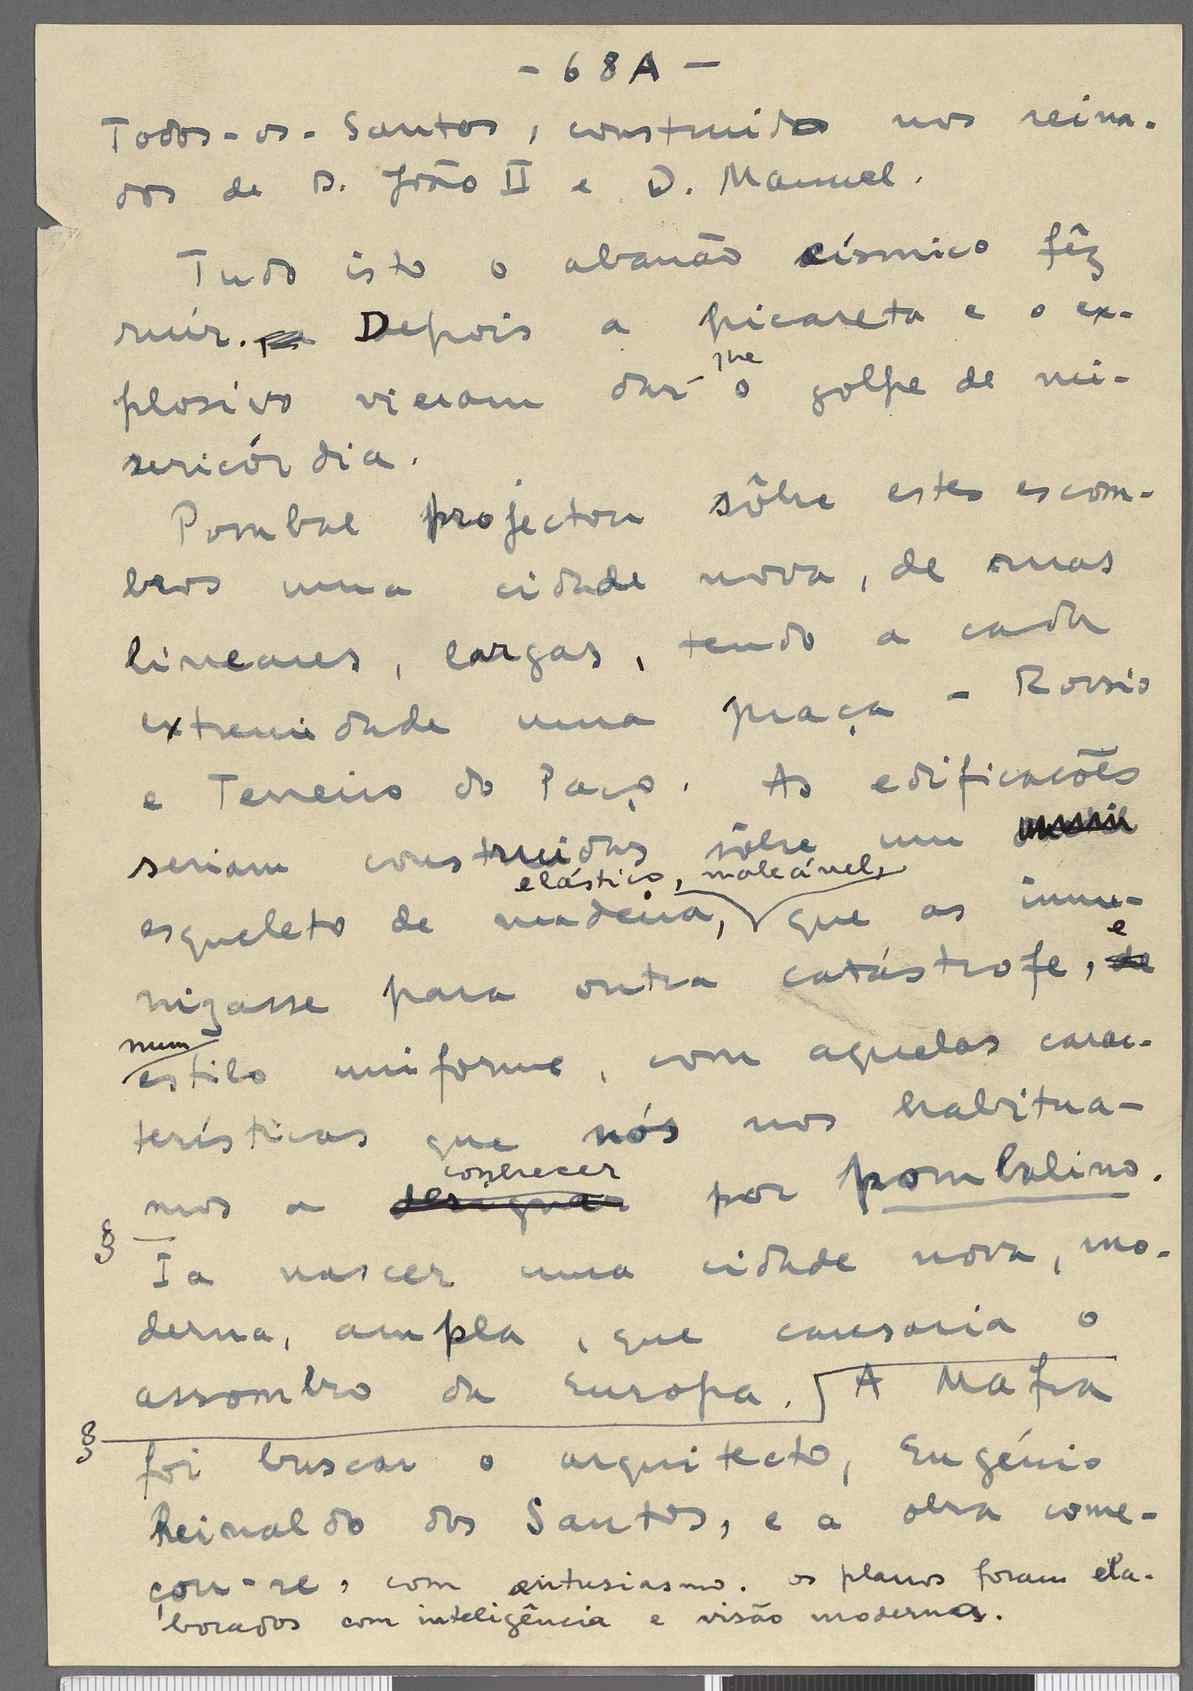 - 68A -
Todos-os-Santos, construido nos reina-
dos de D. João II e D. Manuel.
Tudo isto o abanão císmico fêz
ruír. Depois a picareta e o ex-
plosivo vieram dar-
lhe
o golpe de mi-
sericórdia.
Pombal projectou sôbre estes escom-
bros uma cidade nova, de ruas
lineares, largas, tendo a cada
extremidade uma praça - Rossio
e Terreiro do Paço. As edificações
seriam construidas sôbre um
elástico, maleável,
esqueleto de madeira, que as imu-
e
nizasse para outra catástrofe, de
num
estilo uniforme, com aquelas carac-
terísticas que nós nos habitua-
conhecer
mos a designar por pombalino.
§ Ia nascer uma cidade nova, mo-
derna, ampla, que causaria o
assombro da Europa. A Mafra
§
foi buscar o arquitecto, Eugénio
Reinaldo dos Santos, e a obra come-
çou-se, com entusiasmo. Os planos foram ela-
borados com inteligência e visão moderna.